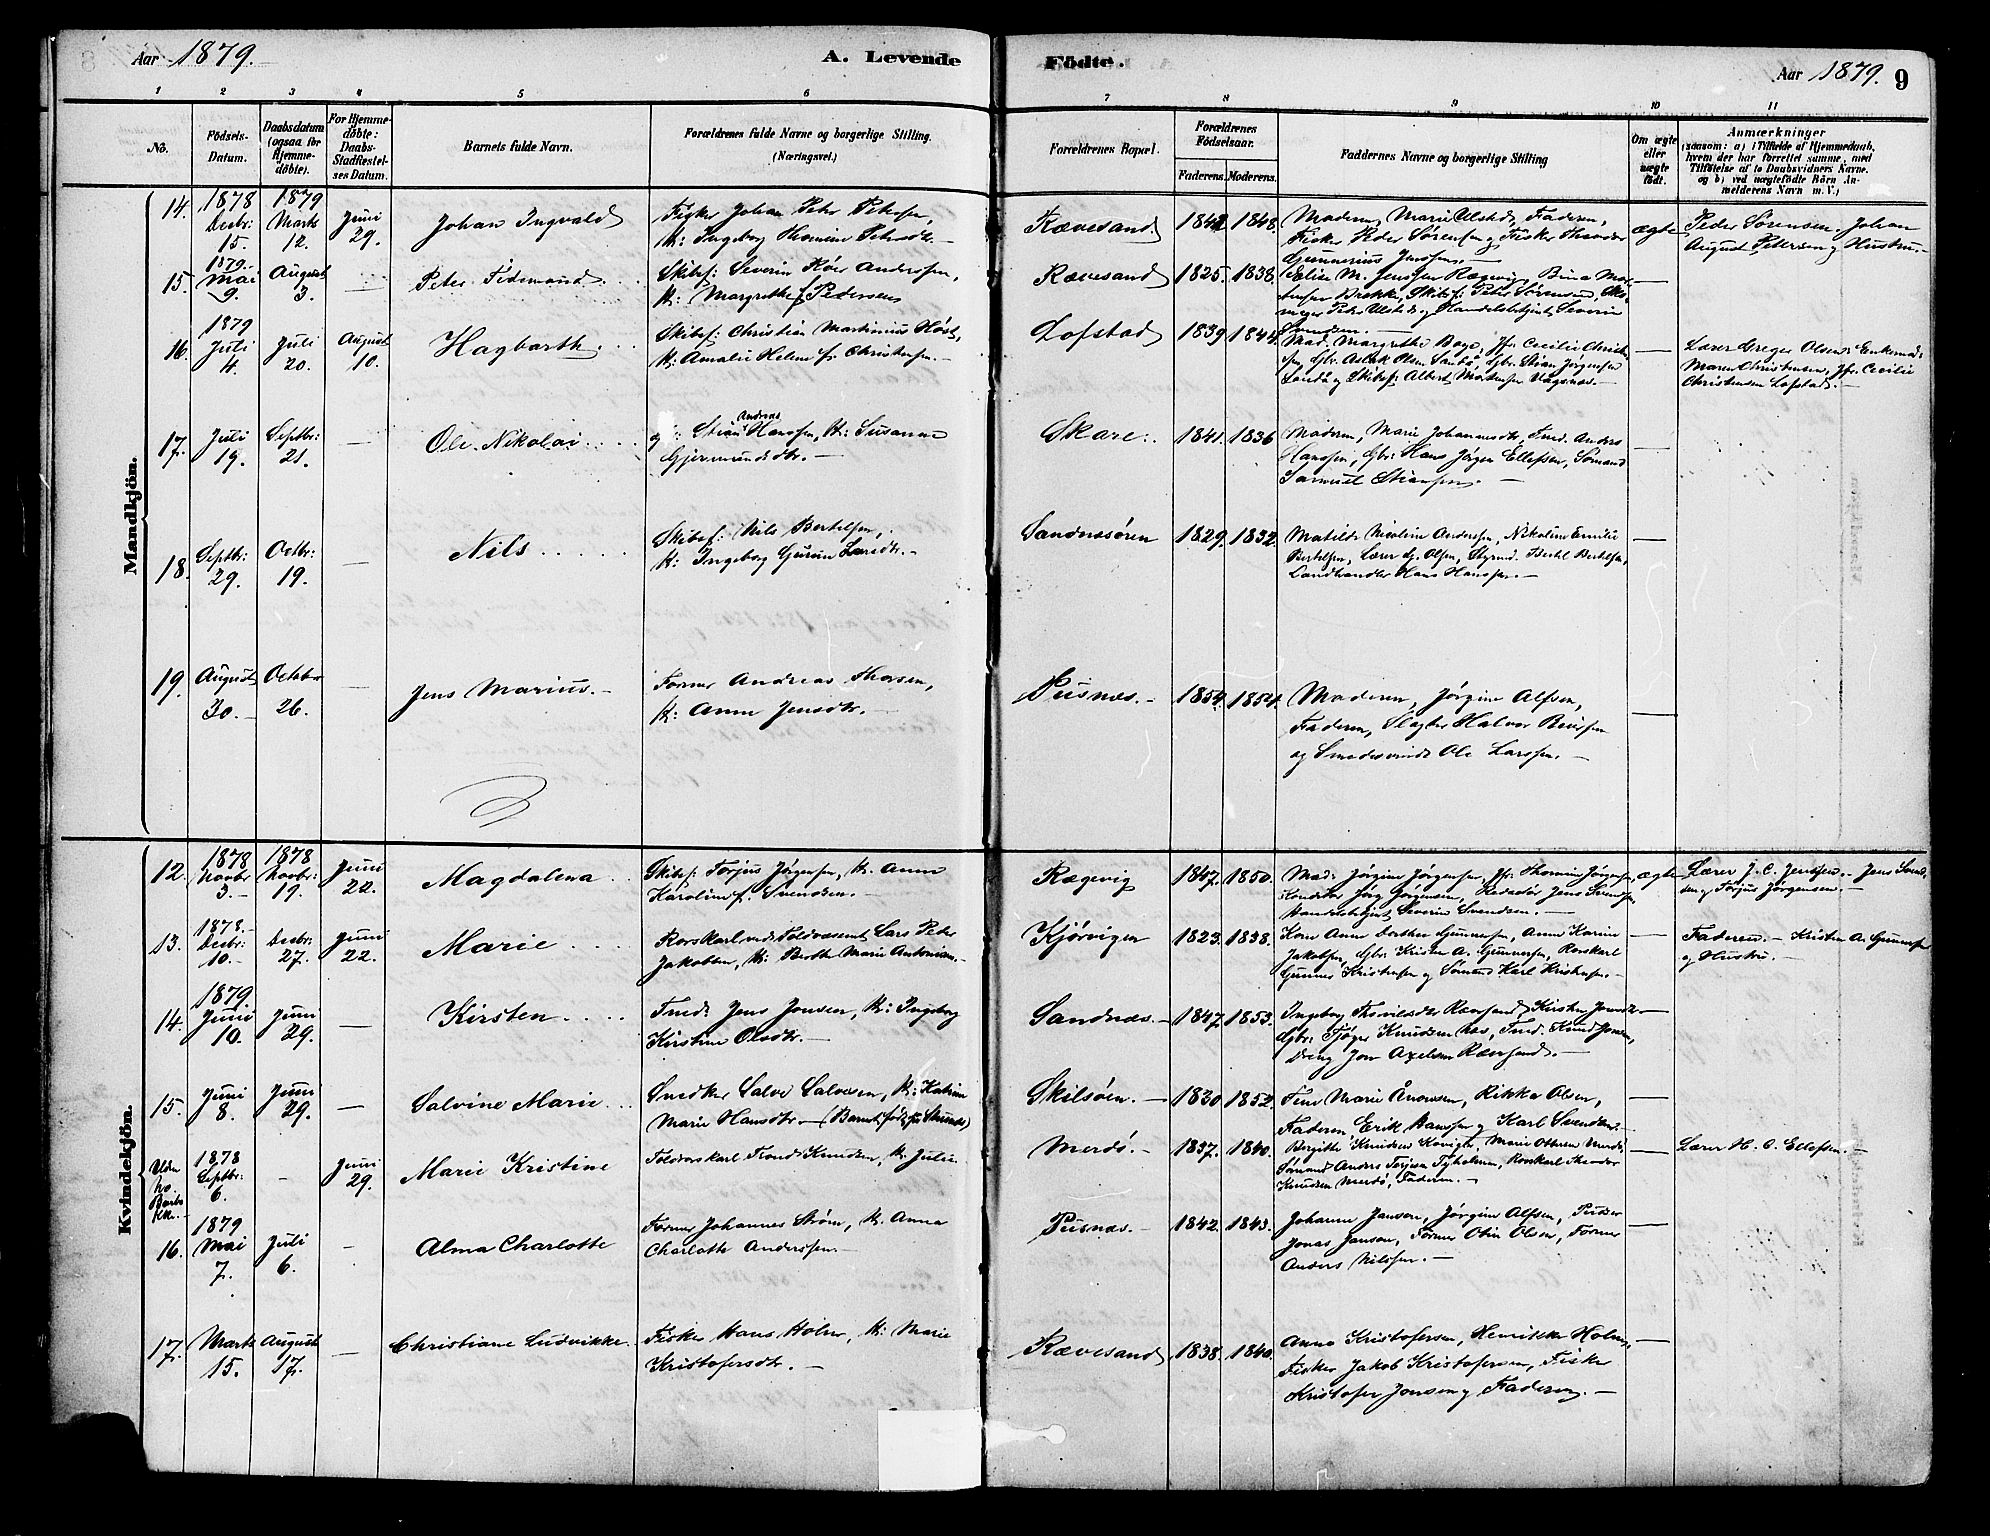 Aar 1879.
A. Levende
Födte.
Aar 1879. 9
1 2 3 4 5 6 7 8 9 10 11
No.
Födsels-
Datum.
Daabsdatum
(ogsaa for
Hjemme-
döbte).
For Hjemme-
döbte:
Daabs-
Stadfæstel-
ses Datum.
Barnets fulde Navn.
Forældrenes fulde Navne og borgerlige Stilling.
(Næringsvei.)
Forældrenes Bopæl.
Forældrenes
Födselsaar.
Faderens. Moderens.
Faddernes Navne og borgerlige Stilling
Om ægte
eller
uægte
födt.
Anmærkninger
(saasom: a) i Tilfælde af Hjemmedaab,
hvem der har forrettet samme, med
Tilföielse af to Daabsvidners Navne.
og b) ved uægtefödte Börn An-
melderens Navn m. V.)
Mandkjön.
14. 1878 Decbr: 15. 1879 Marts 12. Juni 29. Johan Ingvald
Fisker Johan Peter Petersen,
K: Ingeborg Thomine Petersdtr. —
Rævesand. 1842 1848.
Moderen, Marie Ulsted, Faderen,
Fisker Peder Sørensen og Fisker Theodor
Gunnerius Jensen. —
ægte
Peder Sørensen, Johan
August Petersen og Hustru. —
15. 1879. Mai 9. August 3. — Peter Ferdinand
Skibsf: Severin Roer Anderssen,
K: Margrethe f. Pedersen
Rævesand 1825. 1838.
Elise M. Jenssen Rægevig, Skibsf: Peter Sørensen,
Peder Ulsted og Handelsbetjent Severin
Svendsen. —
16. 1879 Juli 4. Juli 20. August 10. Hagbarth.
Skibsf: Christian Martinius Høst,
K: Amalie Helene f. Christensen. —
Lofstad 1839 1844.
Mad. Margrethe Boye, Jfr. Cecilie Christen-
sen, Gbr. Aslak Olsen Sandø, Gbr. Stian Jörgensen
Sandø og Skibsf: Albert Mortensen Vragsnæs. —
Lærer Greger Olsen, Enkemad:
Maren Christensen, Jfr. Cecilie
Christensen Lofstad. —
17. Juli 19. Septbr: 21. — Ole Nikolai
Stian Andreas Hanssen, K: Susanne
Gjermundsdtr. —
Skare. 1841. 1836
Moderen, Marie Johannesdtr, Tmd. Anders
Hanssen, Gbr: Hans Jørgen Ellefsen, Sømand
Samuel Stiansen. —
18. Septbr: 29. Octbr: 19. — Nils
Skibsf: Nils Bertelsen,
K: Ingeborg Gurine Larsdtr. —
Sandnessören 1829. 1832.
Matilde Nicoline Andersen, Nikoline Emilie
Bertelsen, Lærer G. Olsen, Styrmd. Bertel Bertelsen,
Landhandler Hans Hanssen. —
19. August 30. — October 26. — Jens Marius. —
Former Andreas Thorsen,
K: Anne Jensdtr. —
Pusnæs. — 1854. 1854.
Moderen, Jørgine Alfsen,
Faderen, Slagter Halvor Brevssen
og Smedesvend Ole Larssen. —
Kvindekjön.
12. 1878 Novbr 3. — 1878 Novbr: 19. Juni 22. Magdalena
Skibsf: Torjus Jörgensen, K. Anne
Karoline f. Svendsen. —
Rægevig 1847. 1850.
Mad: Jörgine Jörgensen, Jfr. Thomine Jörgensen,
Konditor Jörg Jörgensen, Jens Svendsen,
Handelsbetjent Severin Svendsen. —
ægte
Lærer J. C. Jensen. — Jens Svend-
sen og Torjus Jörgensen. —
13. 1878. — Decbr: 10. — Decbr: 27. Juni 22. Marie
Rorskarl ved Toldvæsenet Lars Peder
Jakobsen, K: Berthe Marie Antonisen. —
Kjørvigen 1823. 1838.
Kone Anne Dorthea Gunnersen, Anne Karine
Jakobsen, Gbr. Kristen A. Gunnersen, Rorskarl
Gunner Kristensen og Sømand Karl Kristensen. —
Faderen. — Kristen A. Gunnersen
og Hustru. —
14. 1879. Juni 10. Juni 29. — Kirsten
Tmd: Jens Jonsen, K: Ingeborg
Kirstine Olsdtr. —
Sandnæs. — 1847. 1853.
Ingeborg Rævesand, Kirsten Jonsdtr. —
Gbr: Tjøger Knudsen Næs, Tmd. Knud Jonsen,
Dreng Jon Axelsen Rævesand. —
15. Juni 8. Juni 29. — Salvine Marie
Snedker Salve Salvesen, K: Katrine
Marie Hansdtr. —
Skilsöen. — 1830 1852.
Tine Marie Aronsen, Rikka Olsen,
Faderen Erik Hanssen og Karl Svendsen. —
Uden No. 1878 Septbr: 6. — Juni 29. Marie Kristine
Toldrorskarl Trond Knudsen, K. Julie
Merdö. — 1837. 1840.
Bergitte Knudsen Kovigen, Marie Ottersen Merdö,
Sømand Anders Terjesen Tyholmen, Rorskarl Theodor
Knudsen Merdö, Faderen. —
Lærer H. O. Ellefsen. —
16. 1879 Mai 7. Juli 6. — Alma Charlotte
Former Johannes Strøm, K. Anna
Charlotte Anderssen. —
Pusnæs. — 1842. 1843.
Johanne Jansen, Jørgine Alfsen, Pudser
Jonas Jansen, Former Otin Olsen, Former
Anders Nilssen. —
17. Marts 15. August 17. — Christiane Ludvikke.
Fisker Hans Holm, K: Marie
Kristofersdtr. —
Rævesand 1838. 1840.
Anna Kristofersen, Henrikke Holm,
Fisker Jakob Kristofersen, Fisker
Kristofer Jonsen og Faderen. —